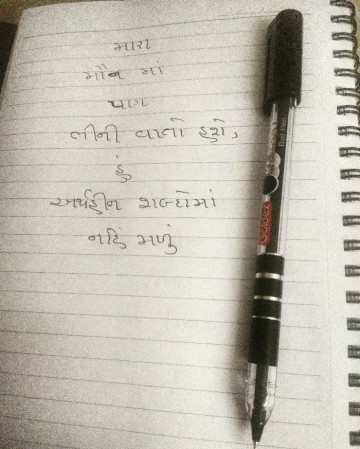 મારા
મૌન માં
પાગ
લીની વાતો હશે,
હું
અર્થહીન શબ્દોમાં
નહિં મળું